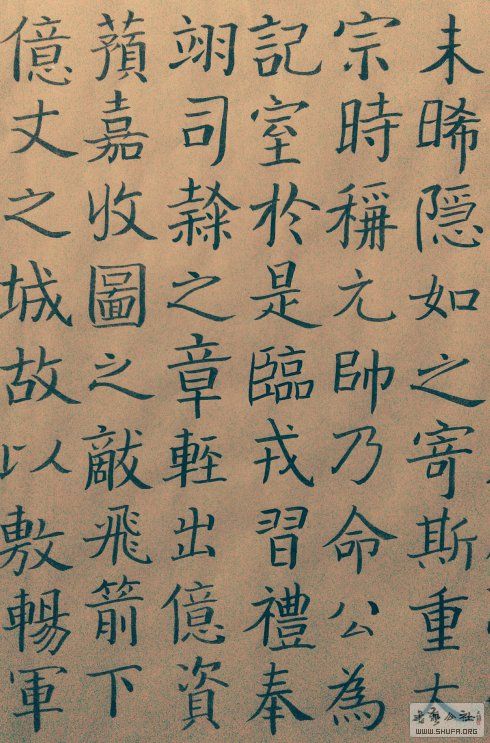 未晞隠如之寄斯重太
宗時稱元帥乃命公為
記室於是臨戎習禮奉
翊司隸之章軽出億資
嘉收圖之敵飛箭下
億丈之城故以敷暢軍
书法公社
WWW.SHUFA.ORG